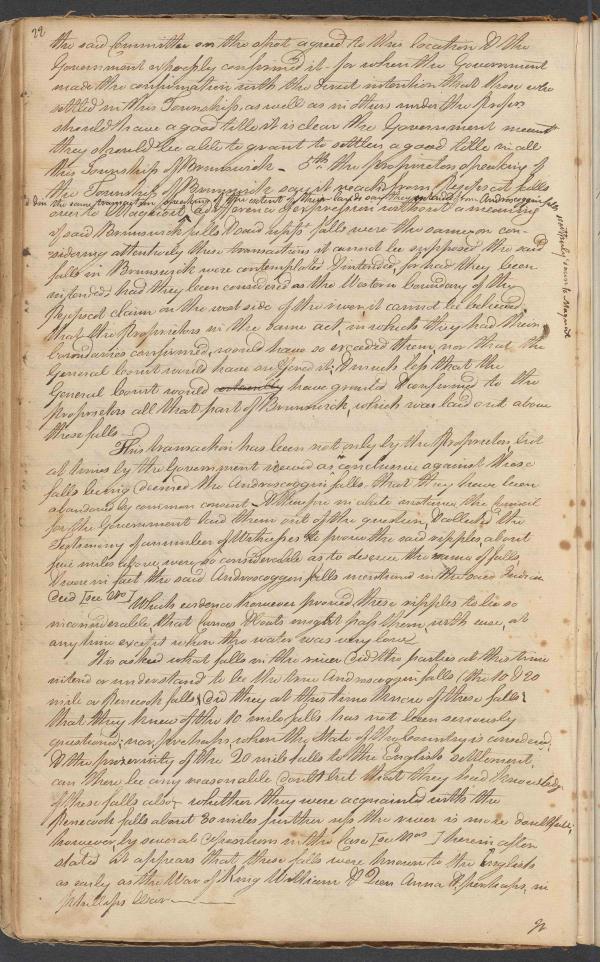 22
the said Committee on the spot agreed to this location & the
Government expressly confirmed it - for when the Government
made the confirmation with the direct intention that those who
settled in this Township, as well as in others under the Propr.s
should have a good title it is clear the Government meant
they should be able to grant to settlers a good title in all
this Township of Brunswick - 5th the Proprietors speaking of
the Township of Brunswick say it reached from Pejepscot falls
& in the same transaction speaking of the extent of their lands say they extended from Androscoggin falls
over to Maquoit, a difference of expression without a meaning
westwardly down to Maquoit
if said Brunswick falls & said ripple falls were the same, or con-
sidering attentively these transactions it cannot be supposed the said
falls in Brunswick were contemplated & intended, for had they been
intended, had they been considered as the Western boundary of the
Pejepscot claim on the west side of the river it cannot be believed,
that the Proprietors in the same act, in which they had their
boundaries confirmed, would have so exceeded them, nor that the
General Court would have suffered it; & much less that the
General Court would certainly have granted & confirmed to the
Proprietors all that part of Brunswick which was laid out above
these falls -
This transaction has been not only by the Proprietors but
at times by the Government viewed as conclusive against these
falls being deemed the Androscoggin falls, that they have been
abandoned by common consent - & therefore in a late instance the Council
for the Government laid them out of the question, & collected the
Testimony of a number of Witnesses to prove the said ripples about
five miles above, were so considerable as to deserve the name of falls,
& were in fact the said Androscoggin falls mentioned in the said Indian
Deed [see No ]
Which evidence however proved these ripples to lie so
inconsiderable, that Canoes & Boats might pass them with ease, at
any time except when the water was very low
It is asked what falls in the river did the parties at this time
intend or understand to be the true Androscoggin falls (the 10 & 20
mile or Penecook falls) did they at this time know of these falls?
that they knew of the 10 mile falls has not been seriously
questioned; nor perhaps, when the State of the Country is considered,
& the proximity of the 20 mile falls to the English settlement,
can there be any reasonable doubt but that they had knowledge
of these falls also - whether they were acquainted with the
Penecook falls about 30 miles further up the river is more doubtful;
however by several depositions in the Case [see Nos ] herein after
stated it appears that these falls were known to the English
as early as the War of King William & Queen Anna & perhaps, in
Phillips War -